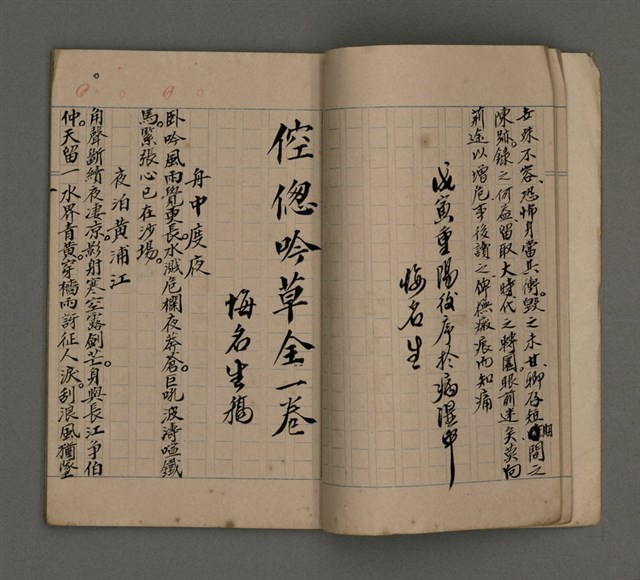 毋殊不容恐怖身當其衝毀之未甘聊存短期間之
陳跡錄之何益留取大時代之轉圜眼前迷矣莫向
前途以增危事後讀之俾撫瘢痕而知痛
戊寅重陽後序於病濕中
悔名生
倥傯吟草全一卷
悔名生稿
舟中度夜
臥吟風雨覺更長水濺危欄夜莽蒼巨吼波濤喧鐵
馬緊張心已在沙場
夜泊黃浦江
角聲斷續夜淒涼影射寒空露劍芒身與長江爭伯
仲天留一水界青黃穿檣雨訝征人淚刮浪風猶墜